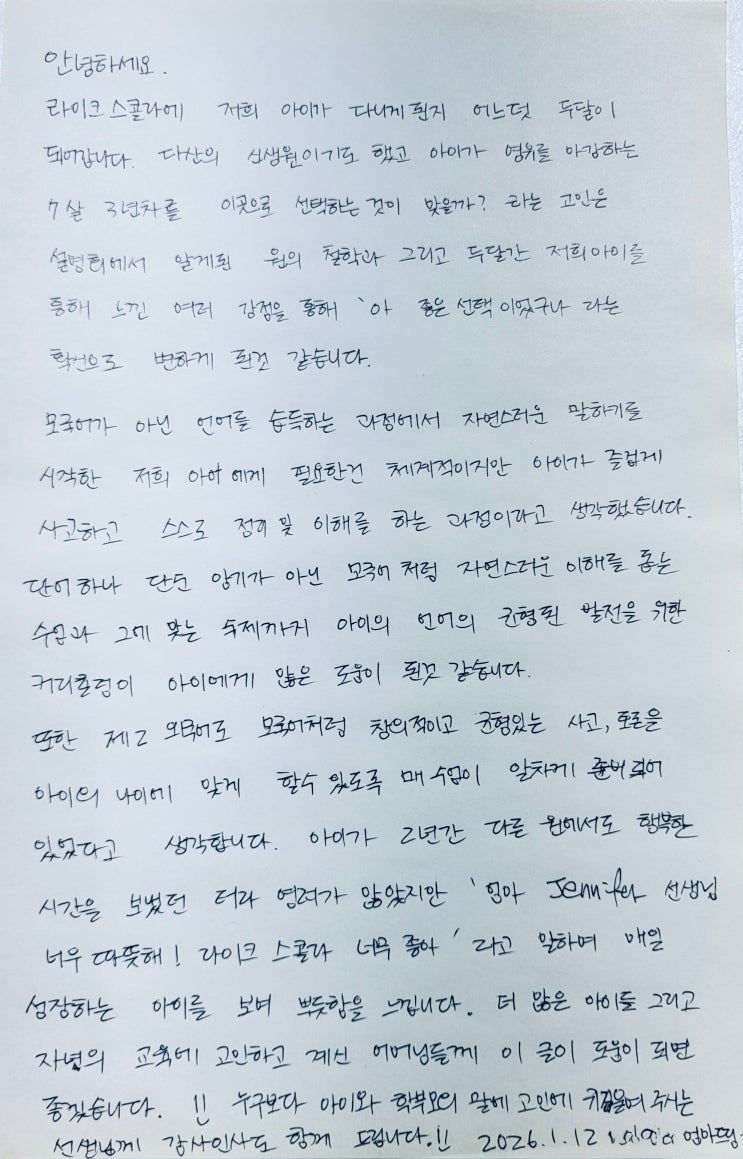 안녕하세요.
라이크스콜라에 저희 아이가 다니게 된지 어느덧 두달이
되어갑니다. 다산의 신생원이기도 했고 아이가 영유를 마감하는
7살 3년차를 이곳으로 선택하는 것이 맞을까? 라는 고민은
설명회에서 알게된 원의 철학과 그리고 두달간 저희아이를
통해 느낀 여러 강점을 통해 '아 좋은 선택이었구나 라는
확신으로 변하게 된것 같습니다.
모국어가 아닌 언어를 습득하는 과정에서 자연스러운 말하기를
시작한 저희 아이에게 필요한건 체계적이지만 아이가 즐겁게
사고하고 스스로 정리 및 이해를 하는 과정이라고 생각했습니다.
단어하나 단순 암기가 아닌 모국어처럼 자연스러운 이해를 돕는
수업과 그에 맞는 숙제까지 아이의 언어의 균형된 발전을 위한
커리큘럼이 아이에게 많은 도움이 된것 같습니다.
또한 제2 외국어도 모국어처럼 창의적이고 균형있는 사고, 토론을
아이의 나이에 맞게 할수 있도록 매 수업이 알차게 준비되어
있었다고 생각합니다. 아이가 2년간 다른 원에서도 행복한
시간을 보냈던 터라 염려가 많았지만 '엄마 Jennifer 선생님
너무 따뜻해! 라이크 스콜라 너무 좋아' 라고 말하며 매일
성장하는 아이를 보며 뿌듯함을 느낍니다. 더 많은 아이들 그리고
자녀의 교육에 고민하고 계신 어머님들께 이 글이 도움이 되면
좋겠습니다. !! 누구보다 아이와 학부모의 말에 고민에 귀기울여 주시는
선생님께 감사인사도 함께 드립니다.!! 2026.1.12 엄마드림.